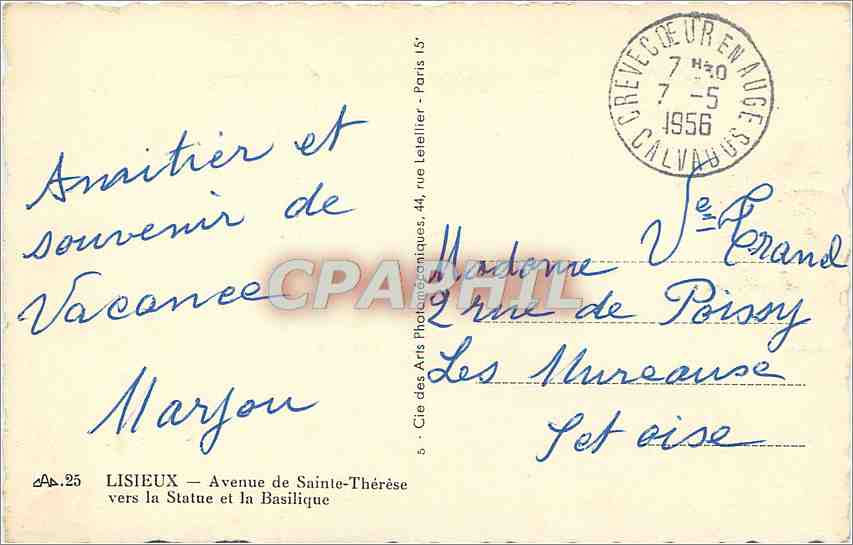 Amitier et
souvenir de
Vacance
Marjou
CAP.25 LISIEUX — Avenue de Sainte-Thérèse
vers la Statue et la Basilique
5 - Cie des Arts Photomécaniques, 44, rue Letellier - Paris 15e
CREVECŒUR EN AUGE
7 H30
7 -5
1956
CALVADOS
Madame Ve Trand
2 rue de Poissy
Les Mureause
Set oise
CPAPHIL